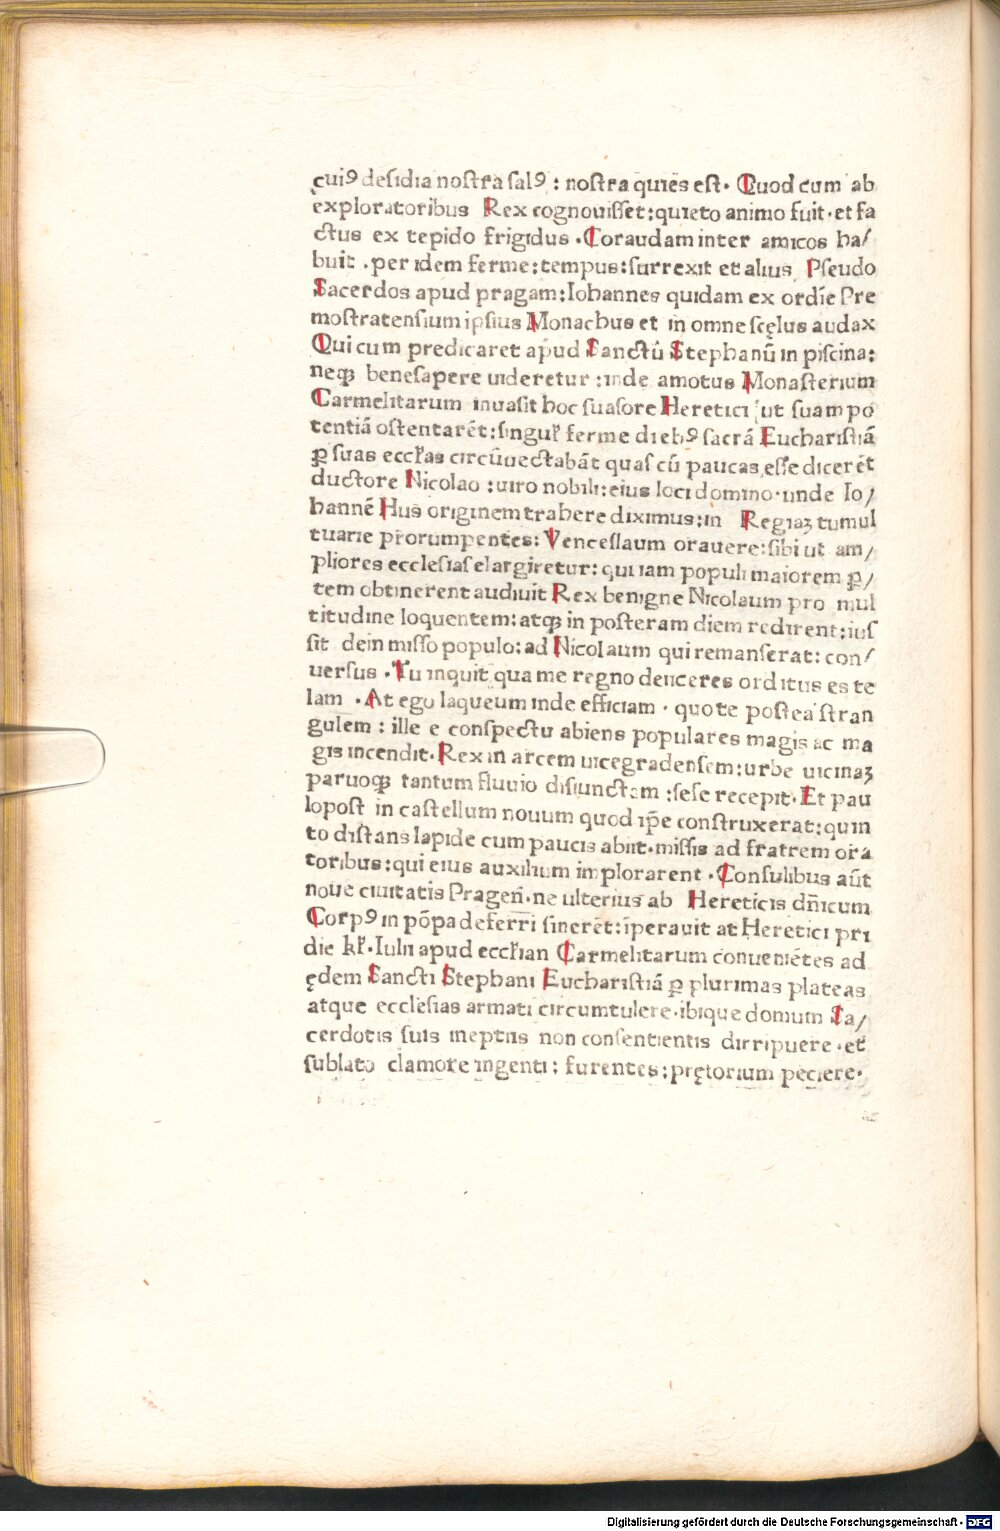 çuiꝰ desidia nostra salꝰ : nostra quies est. Quod cum ab
exploratoribus Rex cognouisset:quieto animo fuit.et fa
ctus ex tepido frigidus .Coraudam inter amicos ha/
buit .per idem ferme:tempus:surrexit et alius Pseudo
Sacerdos apud pragam:Iohannes quidam ex ordīe Pre
mostratensium ipsius Monachus et in omne scęlus audax
Qui cum predicaret apud Sanctū Stephanū in piscina:
neqꝫ benesapere uideretur :inde amotus Monasterium
Carmelitarum inuasit hoc suasore Heretici ut suam po
tentiā ostentarēt:singul᷑ ferme diebꝰ sacrā Eucharistiā
ꝑ suas eccl᷑as circūuectabāt quas cū paucas esse dicerēt
ductore Nicolao :uiro nobili:eius loci domino.unde Io/
hannē Hus originem trahere diximus:in Regiaꝫ tumul
tuarie prorumpentes: Venceslaum orauere:sibi ut am/
pliores ecclesias elargiretur:qui iam populi maiorem ꝑ/
tem obtinerent audiuit Rex benigne Nicolaum pro mul
titudine loquentem:atqꝫ in posteram diem redirent:ius
sit dein misso populo:ad Nicolaum qui remanserat:con/
uersus .Tu inquit qua me regno deiiceres orditus es te
lam .At ego laqueum inde efficiam . quo te postea stran
gulem : ille e conspectu abiens populares magis ac ma
gis incendit.Rex in arcem uicegradensem:urbe uicinaꝫ
paruoqꝫ tantum fluuio disiunctam :sese recepit.Et pau
lopost in castellum nouum quod ip̄e construxerat:quin
to distans lapide cum paucis abiit.missis ad fratrem ora
toribus:qui eius auxilium implorarent .Consulibus aūt
noue ciuitatis Pragen̄.ne ulterius ab Hereticis dn̄icum
Corpꝰ in pōpa deferri sinerēt:īperauit at Heretici pri
die kl᷑.Iulii apud eccl᷑ian Carmelitarum conueniētes ad
ędem Sancti Stephani Eucharistiā ꝑ plurimas plateas
atque ecclesias armati circumtulere.ibique domum Sa/
cerdotis suis ineptiis non consentientis dirripuere .et
sublato clamore ingenti: furentes:prętorium peciere.
Digitalisierung gefördert durch die Deutsche Forschungsgemeinschaft - DFG